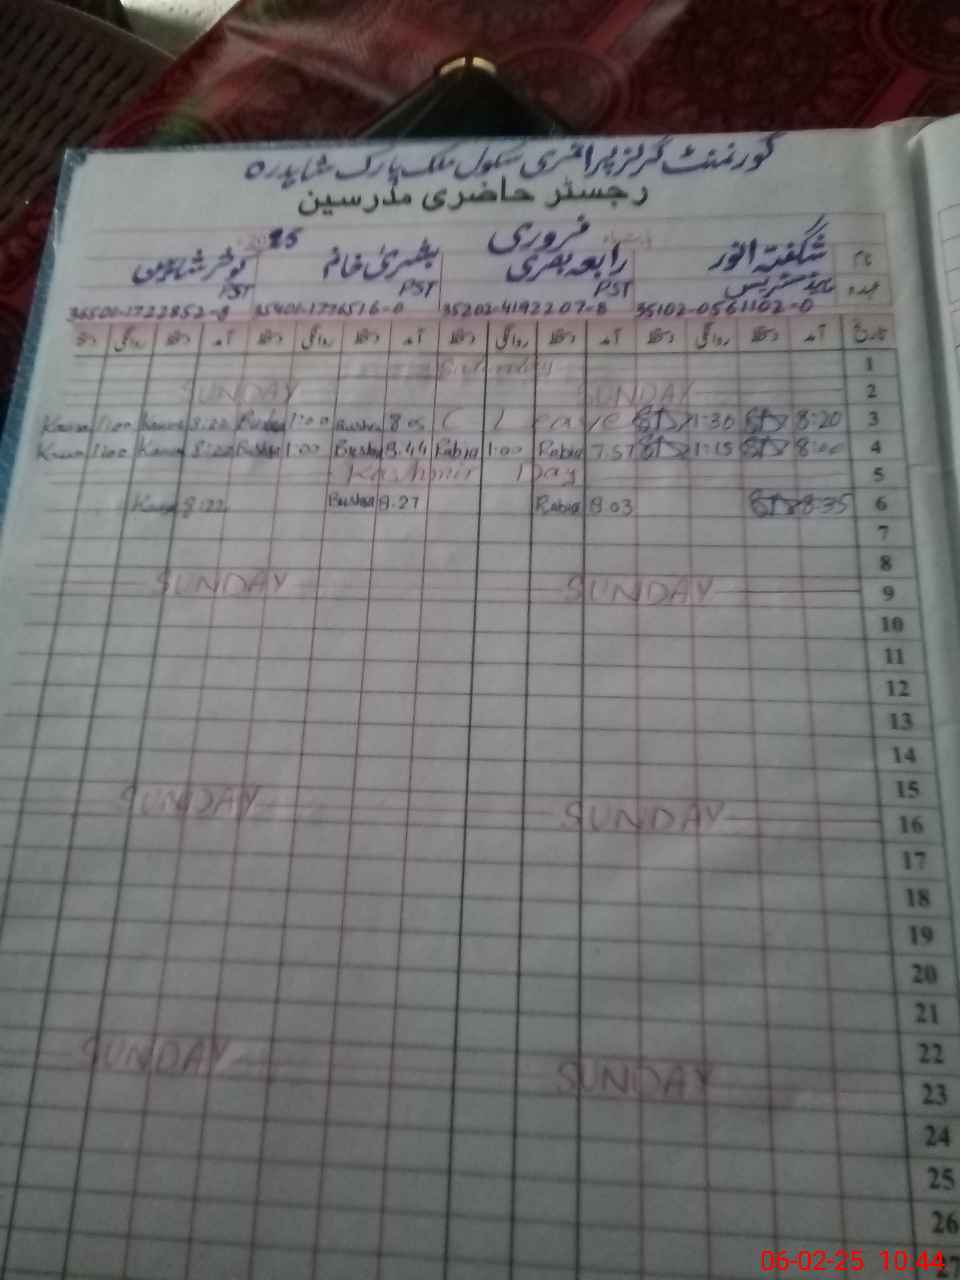 گورنمنٹ گرلز پرائمری سکول ملک پارک شاہدرہ
رجسٹر حاضری مدرسین
فروری 2025
نام شگفتہ انور رابعہ بصری بشریٰ خانم کوثر شاہین
عہدہ ہیڈ مسٹریس PST PST PST
35102-0561102-0 35202-4192207-8 35401-1776576-0 36500-1722852-8
تاریخ آمد دستخط روانگی دستخط آمد دستخط روانگی دستخط آمد دستخط روانگی دستخط آمد دستخط روانگی دستخط
1
2 SUNDAY SUNDAY
3 8:20 1:30 C Leave 8:05 Bushra 1:00 Bushra 8:22 1:00
4 8:00 1:15 7:57 Rabia 1:00 Rabia 8:44 Bushra 1:00 Bushra 8:20 1:00
5 Kashmir Day
6 8:35 8:03 Rabia 8:27 Bushra 8:22
7
8
9 SUNDAY SUNDAY
10
11
12
13
14
15
16 SUNDAY SUNDAY
17
18
19
20
21
22
23 SUNDAY SUNDAY
24
25
26
27
06-02-25 10.44